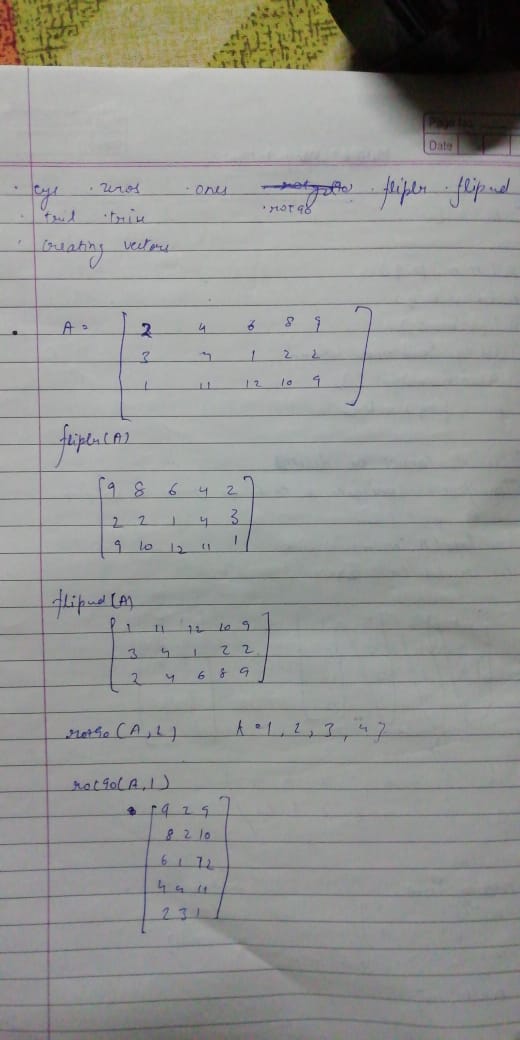 Page No.
Date
· eye · zeros · ones · fliplr · flipud
· tril · triu · rot90
· Creating vectors
· A = [ 2 4 6 8 9
3 4 1 2 2
1 11 12 10 9 ]
fliplr(A)
[ 9 8 6 4 2
2 2 1 4 3
9 10 12 11 1 ]
flipud(A)
[ 1 11 12 10 9
3 4 1 2 2
2 4 6 8 9 ]
rot90(A, k) k = 1, 2, 3, 4 }
rot90(A, 1)
[ 9 2 9
8 2 10
6 1 12
4 4 11
2 3 1 ]